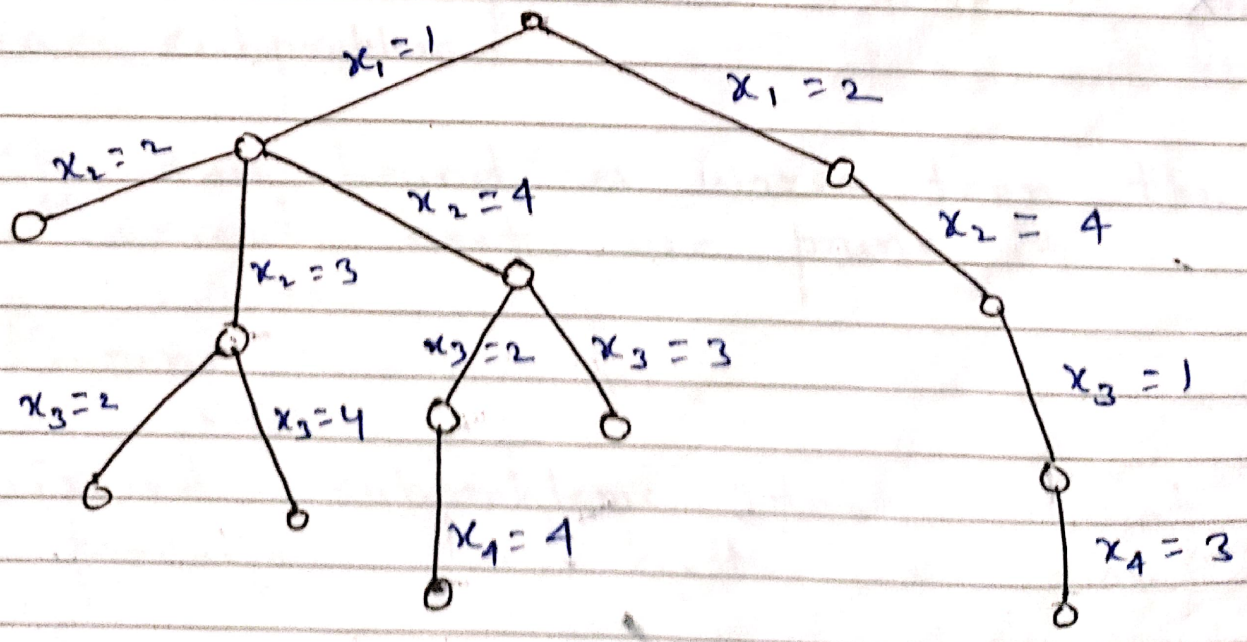 x₁ = 1
x₁ = 2
x₂ = 2
x₂ = 4
x₂ = 4
x₂ = 3
x₃ = 2
x₃ = 4
x₃ = 2
x₃ = 3
x₃ = 1
x₄ = 4
x₄ = 3